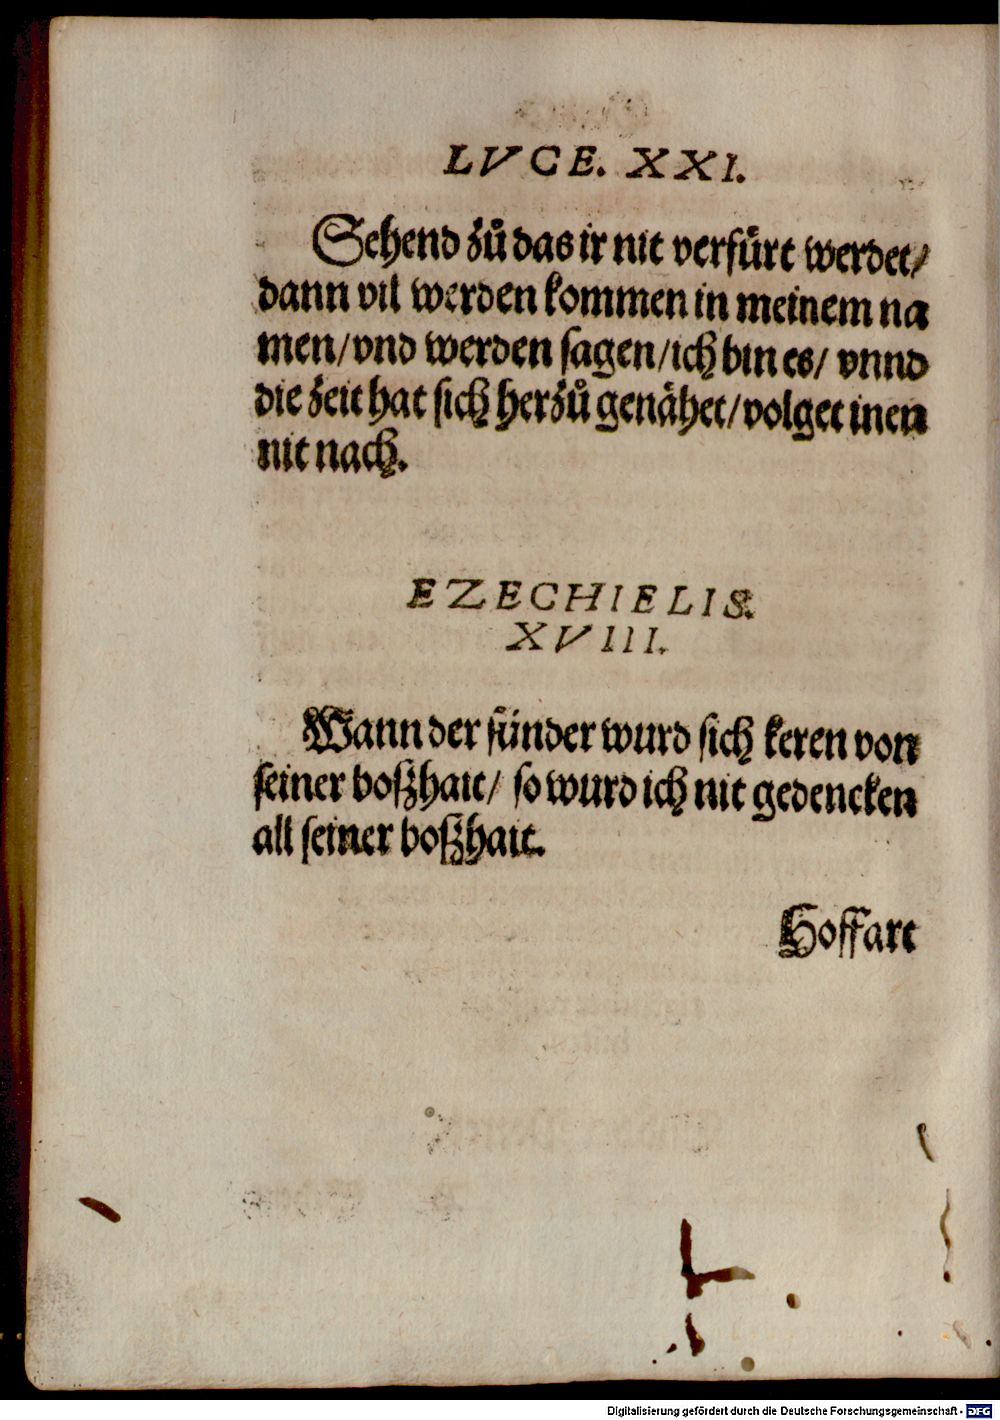 LVCE. XXI.
Sehend zů das ir nit verfürt werdet/
dann vil werden kommen in meinem na
men/vnd werden sagen/ich bin es/ vnnd
die zeit hat sich herzů genähet/volget inen
nit nach.
EZECHIELIS.
XVIII.
Wann der sünder wurd sich keren von
seiner boßhait/ so wurd ich nit gedencken
all seiner boßhait.
Hoffart
Digitalisierung gefördert durch die Deutsche Forschungsgemeinschaft - DFG